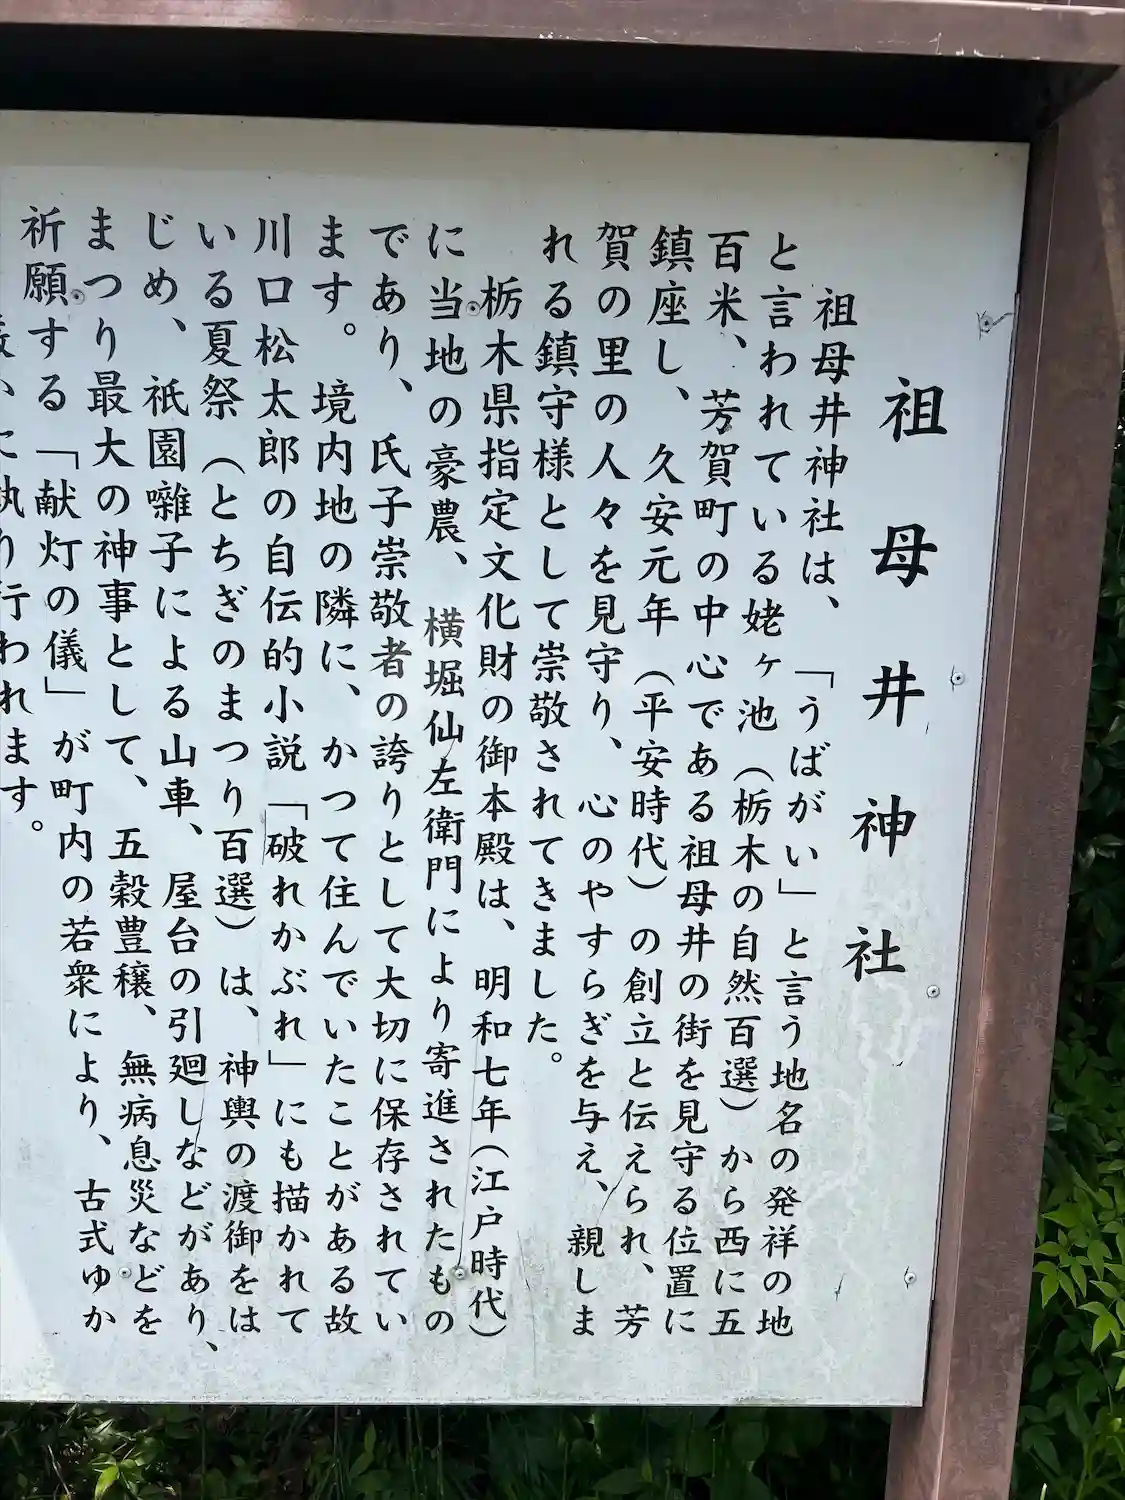 祖母井神社
祖母井神社は、「うばがい」と言う地名の発祥の地
と言われている姥ヶ池(栃木の自然百選)から西に五
百米、芳賀町の中心である祖母井の街を見守る位置に
鎮座し、久安元年(平安時代)の創立と伝えられ、芳
賀の里の人々を見守り、心のやすらぎを与え、親しま
れる鎮守様として崇敬されてきました。
栃木県指定文化財の御本殿は、明和七年(江戸時代)
に当地の豪農、横堀仙左衛門により寄進されたもの
であり、氏子崇敬者の誇りとして大切に保存されてい
ます。境内地の隣に、かつて住んでいたことがある故
川口松太郎の自伝的小説「破れかぶれ」にも描かれて
いる夏祭(とちぎのまつり百選)は、神輿の渡御をは
じめ、祇園囃子による山車、屋台の引廻しなどがあり、
まつり最大の神事として、五穀豊穣、無病息災などを
祈願する「献灯の儀」が町内の若衆により、古式ゆか
に執り行われます。